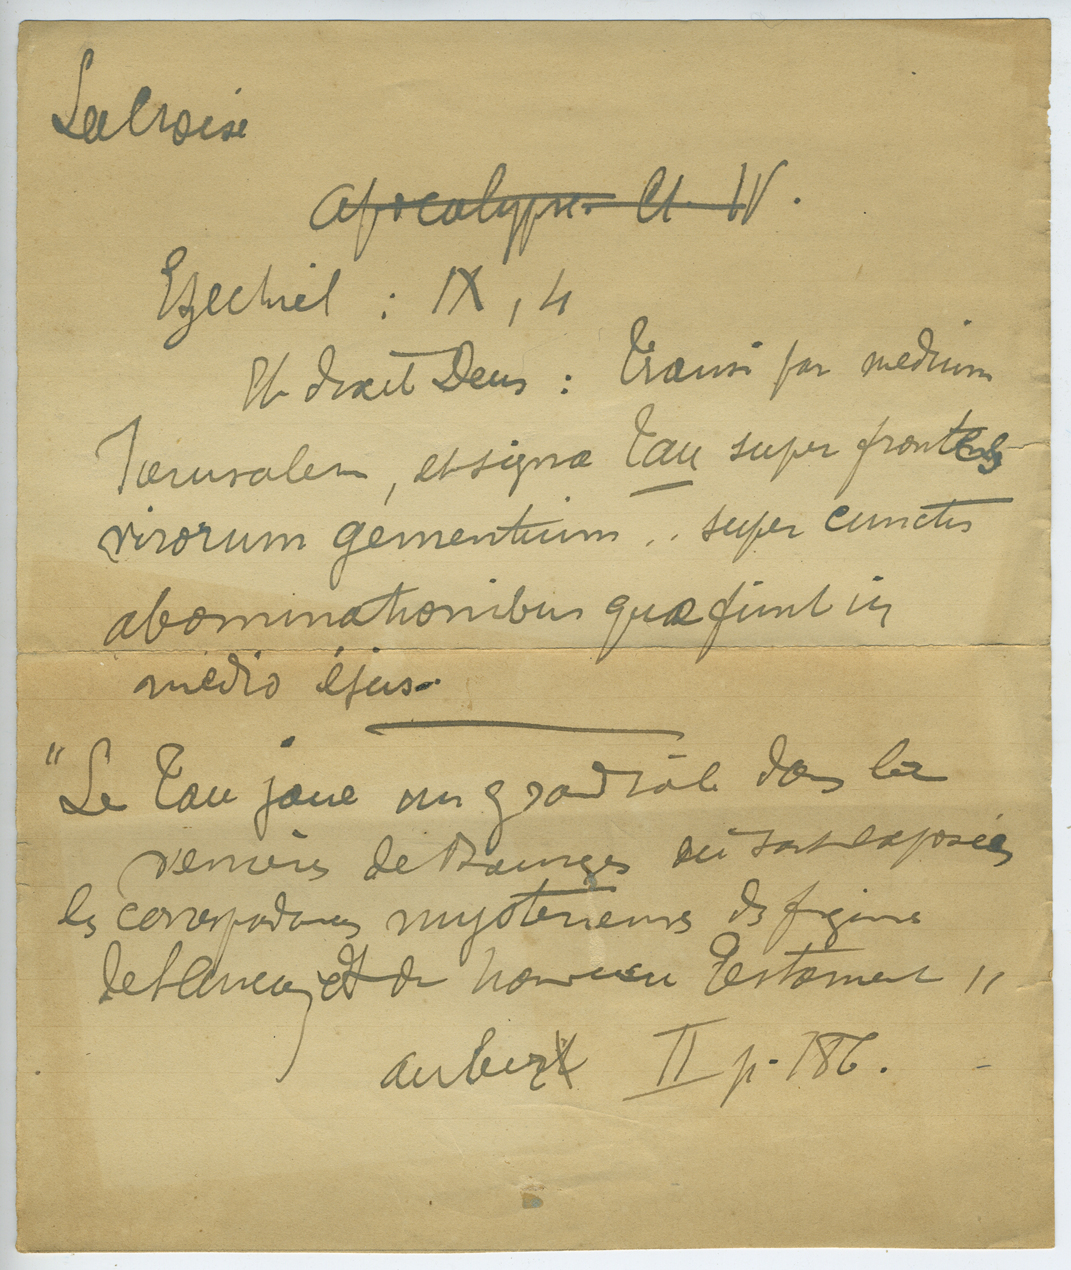 La Croise
Apocalypse Ch. IV.
Ezechiel : IX, 4
Et dixit Deus : Transi per medium
Jerusalem, et signa Tau super frontes
virorum gementium .. super cunctis
abominationibus quæ fiunt in
medio ejus.
"Le Tau joue un grand rôle dans les
verrières de Bourges où sont exposées
les correspondances mystérieuses des figures
de l'Ancien et du Nouveau Testament "
Auber II p. 186.